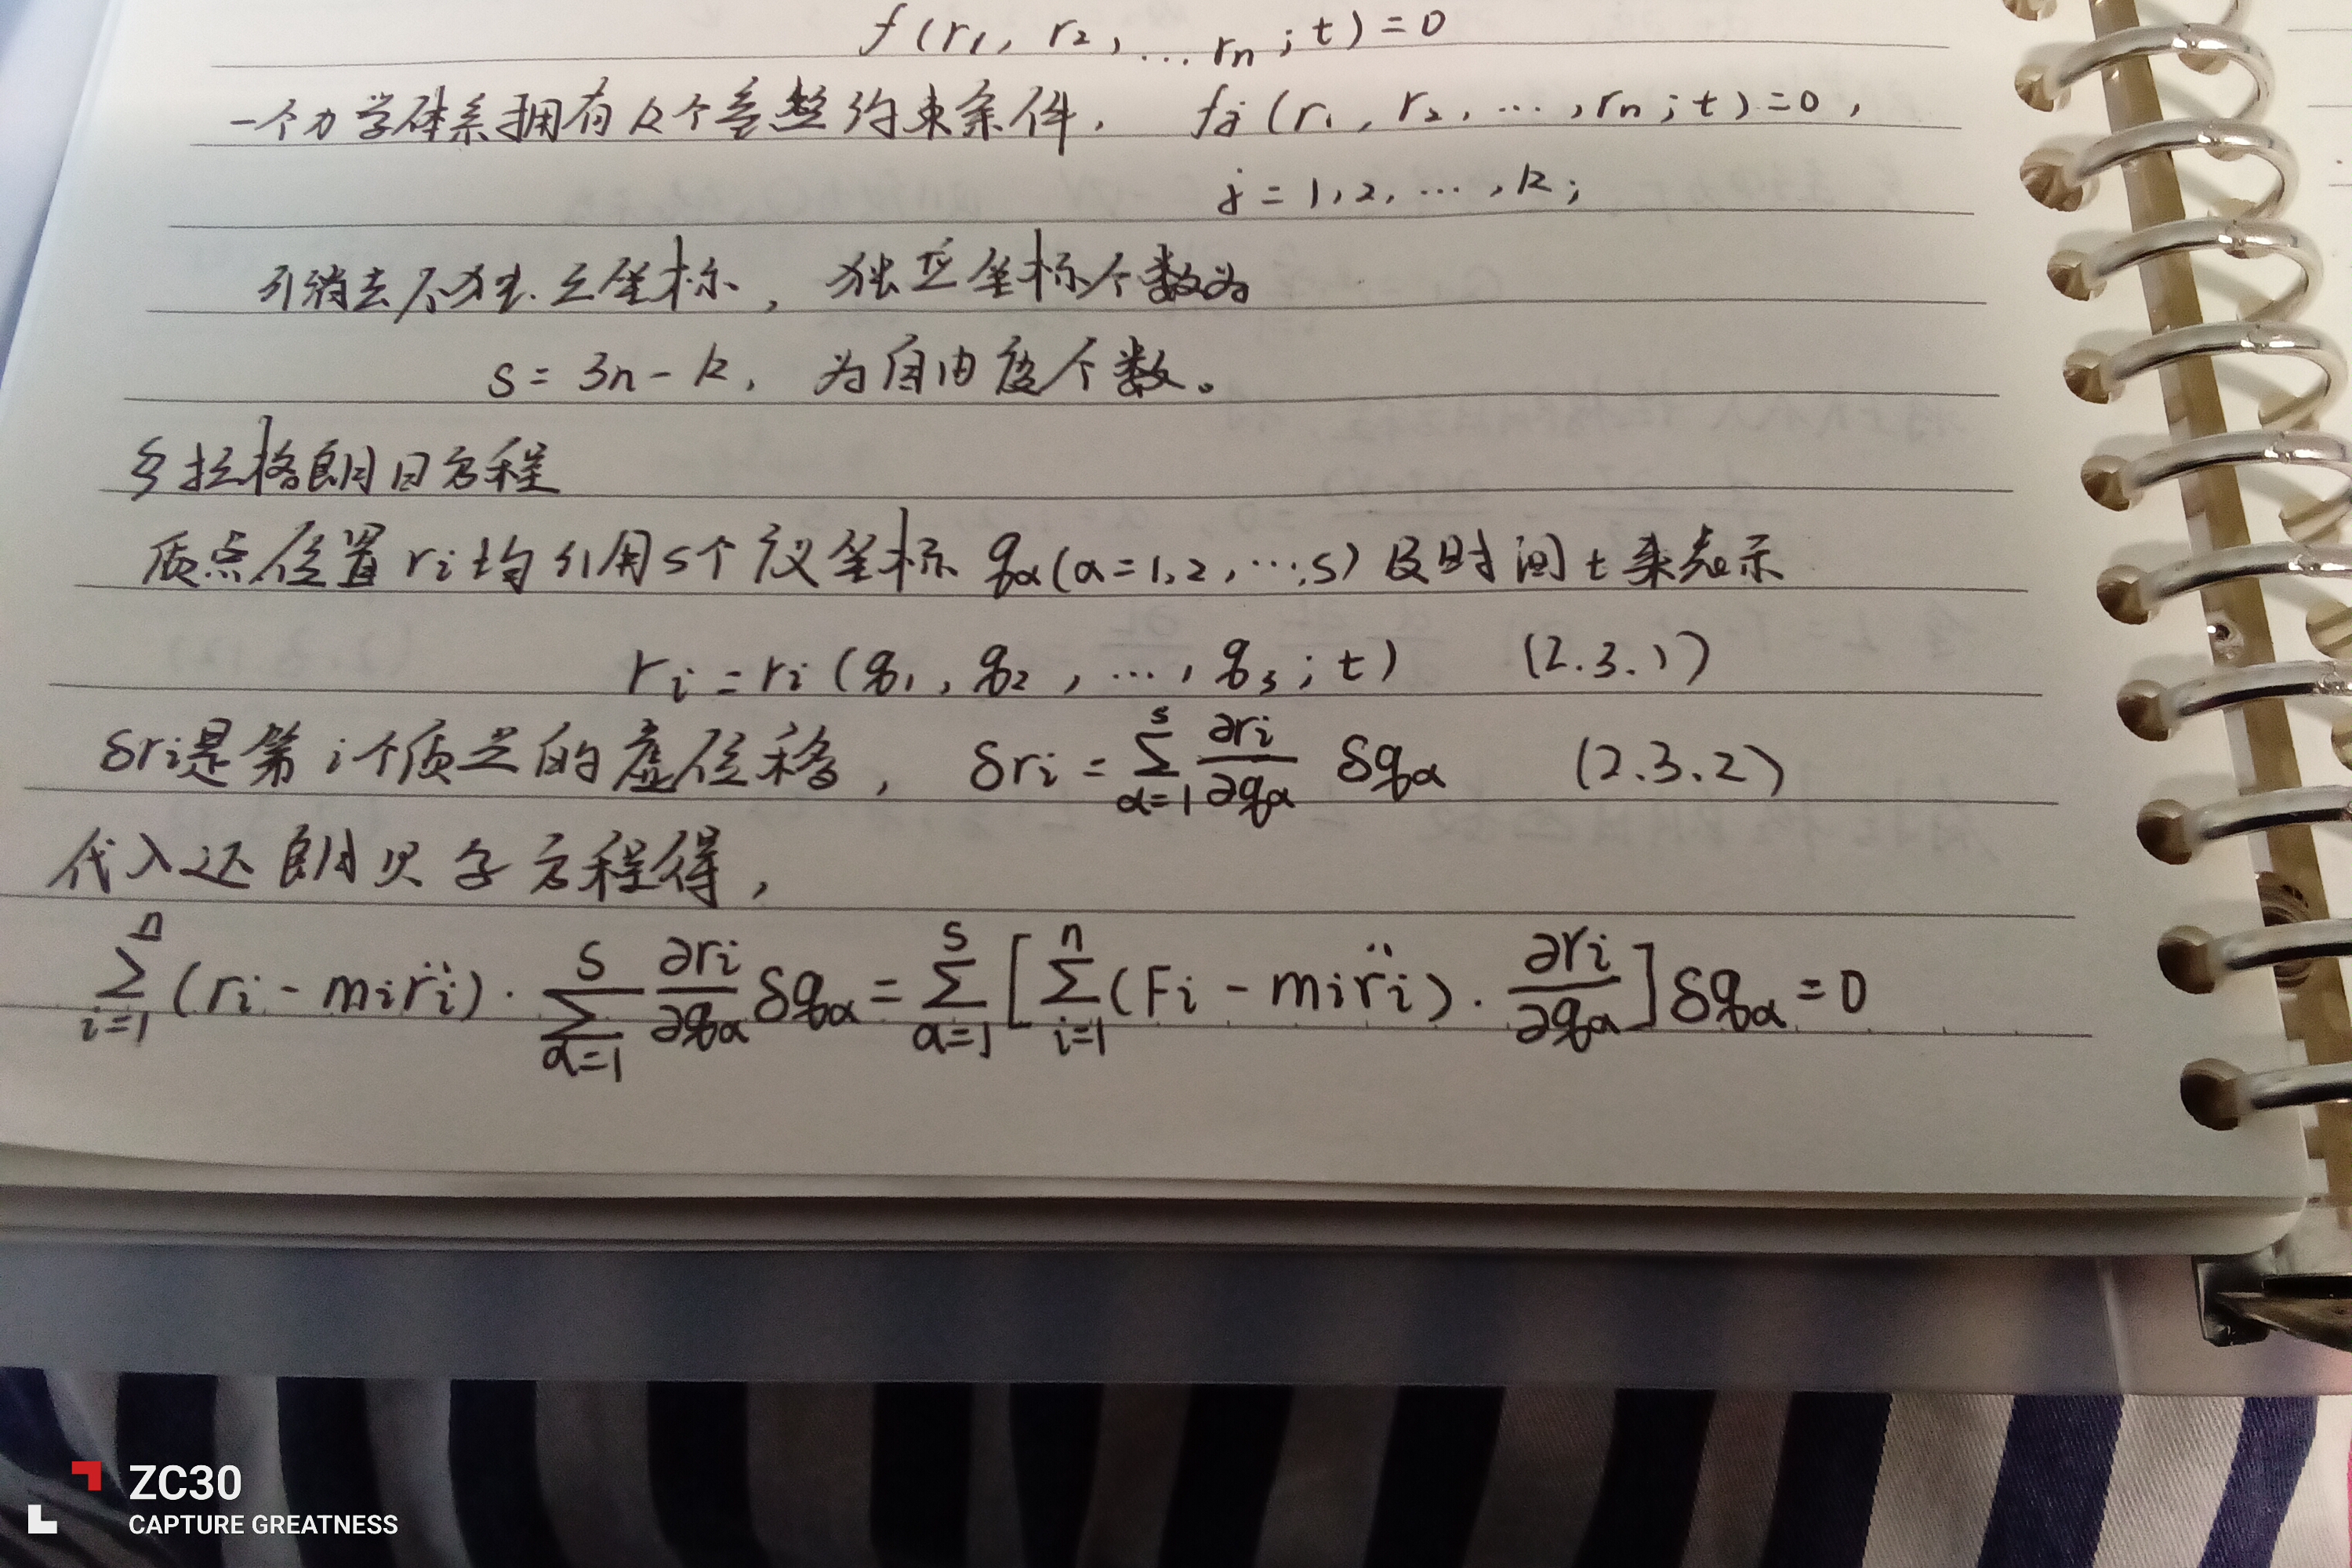 f(r₁, r₂, … rₙ; t) = 0
一个力学体系拥有k个完整约束条件, fⱼ(r₁, r₂, …, rₙ; t) = 0,
j = 1, 2, …, k;
可消去不独立坐标, 独立坐标个数为
s = 3n - k, 为自由度个数。
§拉格朗日方程
质点位置 rᵢ 均可用s个广义坐标 qα(α=1,2,…,s)及时间t来表示
rᵢ = rᵢ(q₁, q₂, …, qₛ; t) (2.3.1)
δrᵢ是第i个质点的虚位移, δrᵢ = ∑_{α=1}^{s} ∂rᵢ/∂qα δqα (2.3.2)
代入达朗贝尔方程得,
∑_{i=1}^{n} (rᵢ - mᵢr̈ᵢ) · ∑_{α=1}^{s} ∂rᵢ/∂qα δqα = ∑_{α=1}^{s} [∑_{i=1}^{n} (Fᵢ - mᵢr̈ᵢ) · ∂rᵢ/∂qα] δqα = 0
ZC30
CAPTURE GREATNESS